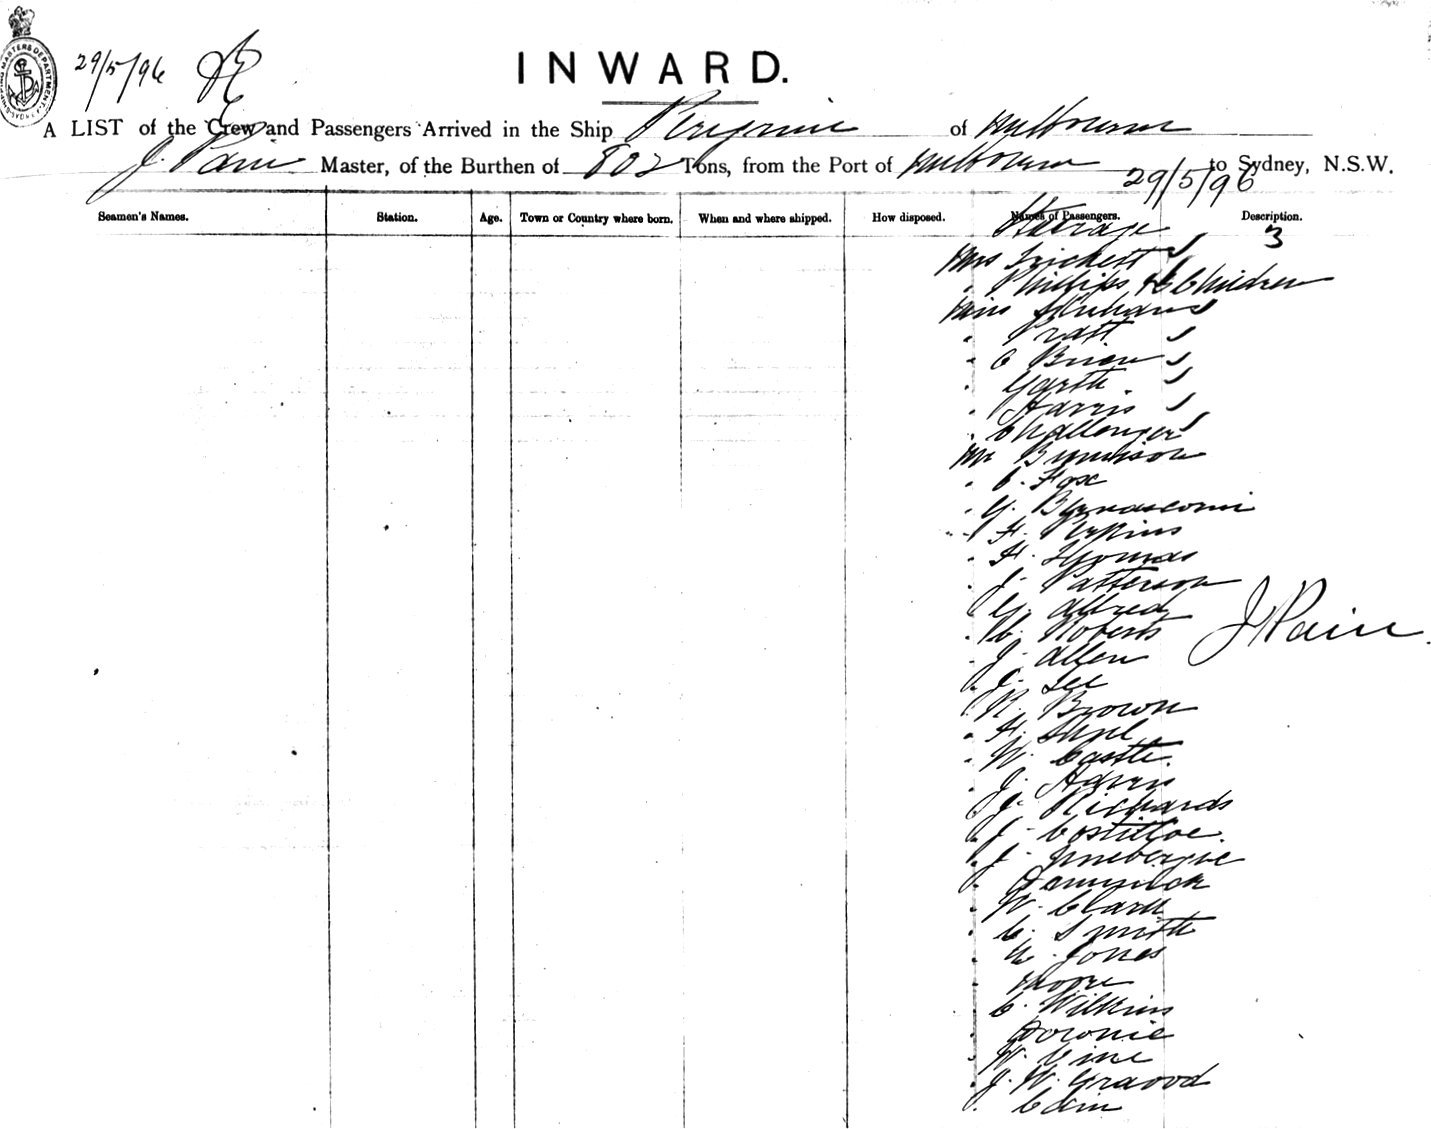 SHIPPING MASTERS DEPARTMENT
29/5/96
INWARD.
A LIST of the Crew and Passengers Arrived in the Ship Peregrine of Melbourne
J. Pain Master, of the Burthen of 802 Tons, from the Port of Melbourne to Sydney, N.S.W.
29/5/96
Seamen's Names. Station. Age. Town or Country where born. When and where shipped. How disposed. Names of Passengers. Description.
Steerage 3
Mrs
" Phillips Children
Miss
" Pratt
" O Brien
" Garth
" Harris
" Challenger
Mr
" C. Fox
" G. Bernasconi
" F. Perkins
" H. Thomas
" J. Patterson
" G. Alfred
J Pain
" Roberts
" J. Allen
" J. Lee
" R. Brown
" H.
" W. Castle.
" J.
" J. Richards
" J. Costilloe.
" J.
"
" W. Clark
" C. Smith
" Jones
" Moore
" C. Wilkins
" Downie
" W. Cine
" J. W.
" Cain